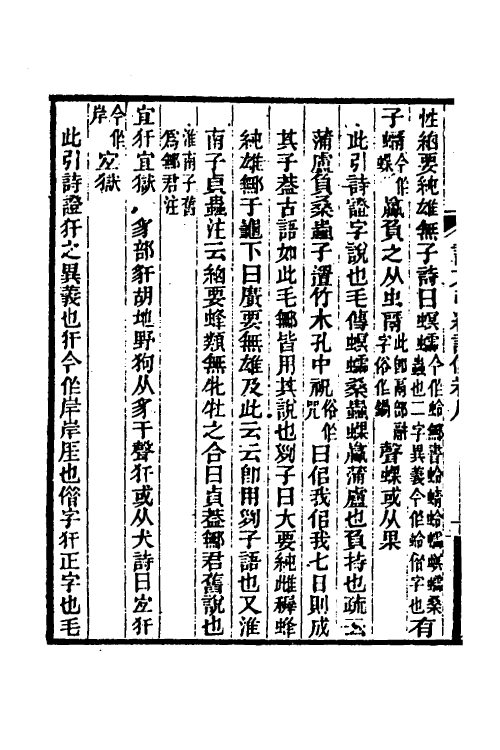 性細要純雄無子詩曰螟蠕今作蛉鄦書蛉蜻蛉蠕螟蠕桑蟲也二字異義今作蛉借字也有
子蜻今作蜾蠃負之从虫𩰫此卽鬲部䰜字俗作鍋聲蜾或从果
此引詩證字說也毛傳螟蠕桑蟲蜾蠃蒲盧也負持也疏云
蒲盧負桑蟲子置竹木孔中祝俗作咒曰佀我佀我七日則成
其子葢古語如此毛鄦皆用其說也列子曰大要純雌穉蜂
純雄鄦于龜下曰廣要無雄及此云云卽用列子語也又淮
南子貞蟲注云細要蜂類無牝牡之合曰貞葢鄦君舊說也
淮南子舊爲鄦君注
宜犴宜獄豸部豻胡地野狗从豸干聲犴或从犬詩曰宐犴
今作岸宐獄
此引詩證犴之異義也犴今作岸岸厓也借字犴正字也毛